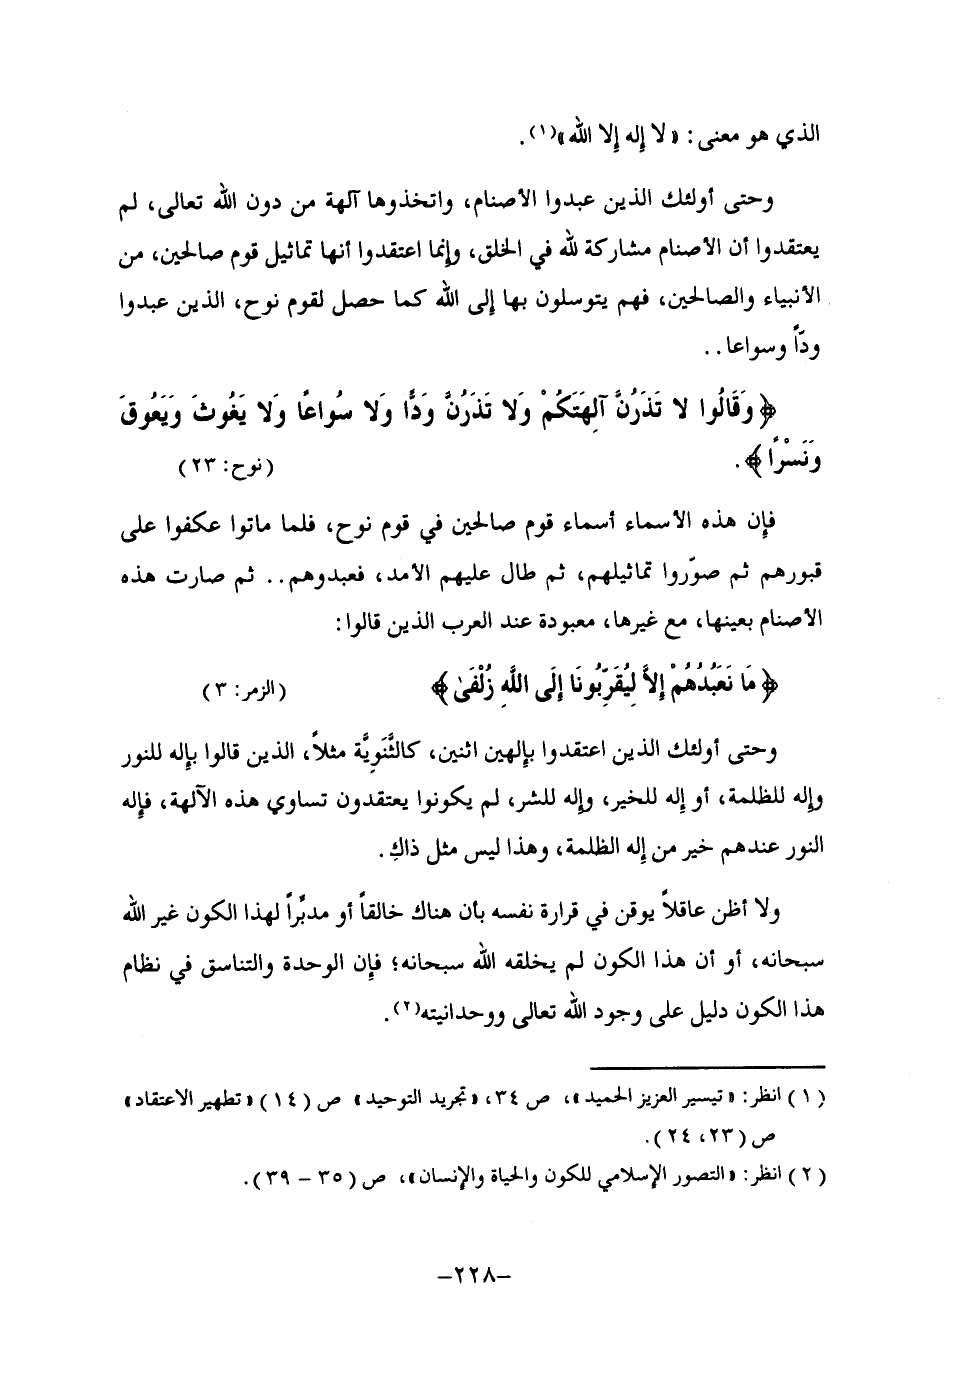 الذي هو معنى: «لا إله إلا الله»(١).
وحتى أولئك الذين عبدوا الأصنام، واتخذوها آلهة من دون الله تعالى، لم
يعتقدوا أن الأصنام مشاركة لله في الخلق، وإنما اعتقدوا أنها تماثيل قوم صالحين، من
الأنبياء والصالحين، فهم يتوسلون بها إلى الله كما حصل لقوم نوح، الذين عبدوا
ودّاً وسواعا..
﴿وَقَالُوا لا تَذَرُنَّ آلِهَتَكُمْ وَلا تَذَرُنَّ وَدًّا وَلا سُواعًا وَلا يَغُوثَ وَيَعُوقَ
وَنَسْرًا﴾. (نوح: ٢٣)
فإن هذه الأسماء أسماء قوم صالحين في قوم نوح، فلما ماتوا عكفوا على
قبورهم ثم صوّروا تماثيلهم، ثم طال عليهم الأمد، فعبدوهم.. ثم صارت هذه
الأصنام بعينها، مع غيرها، معبودة عند العرب الذين قالوا:
﴿مَا نَعْبُدُهُمْ إِلاَّ لِيُقَرِّبُونَا إِلَى اللَّهِ زُلْفَىٰ﴾ (الزمر: ٣)
وحتى أولئك الذين اعتقدوا بإلهين اثنين، كالثَّنَوِيَّة مثلاً، الذين قالوا بإله للنور
وإله للظلمة، أو إله للخير، وإله للشر، لم يكونوا يعتقدون تساوي هذه الآلهة، فإله
النور عندهم خير من إله الظلمة، وهذا ليس مثل ذاكِ.
ولا أظن عاقلاً يوقن في قرارة نفسه بأن هناك خالقاً أو مدبِّراً لهذا الكون غير الله
سبحانه، أو أن هذا الكون لم يخلقه الله سبحانه؛ فإن الوحدة والتناسق في نظام
هذا الكون دليل على وجود الله تعالى ووحدانيته(٢).
(١) انظر: «تيسير العزيز الحميد»، ص ٣٤، «تجريد التوحيد» ص (١٤) «تطهير الاعتقاد»
ص (٢٣، ٢٤).
(٢) انظر: «التصور الإسلامي للكون والحياة والإنسان»، ص (٣٥ - ٣٩).
-٢٢٨-